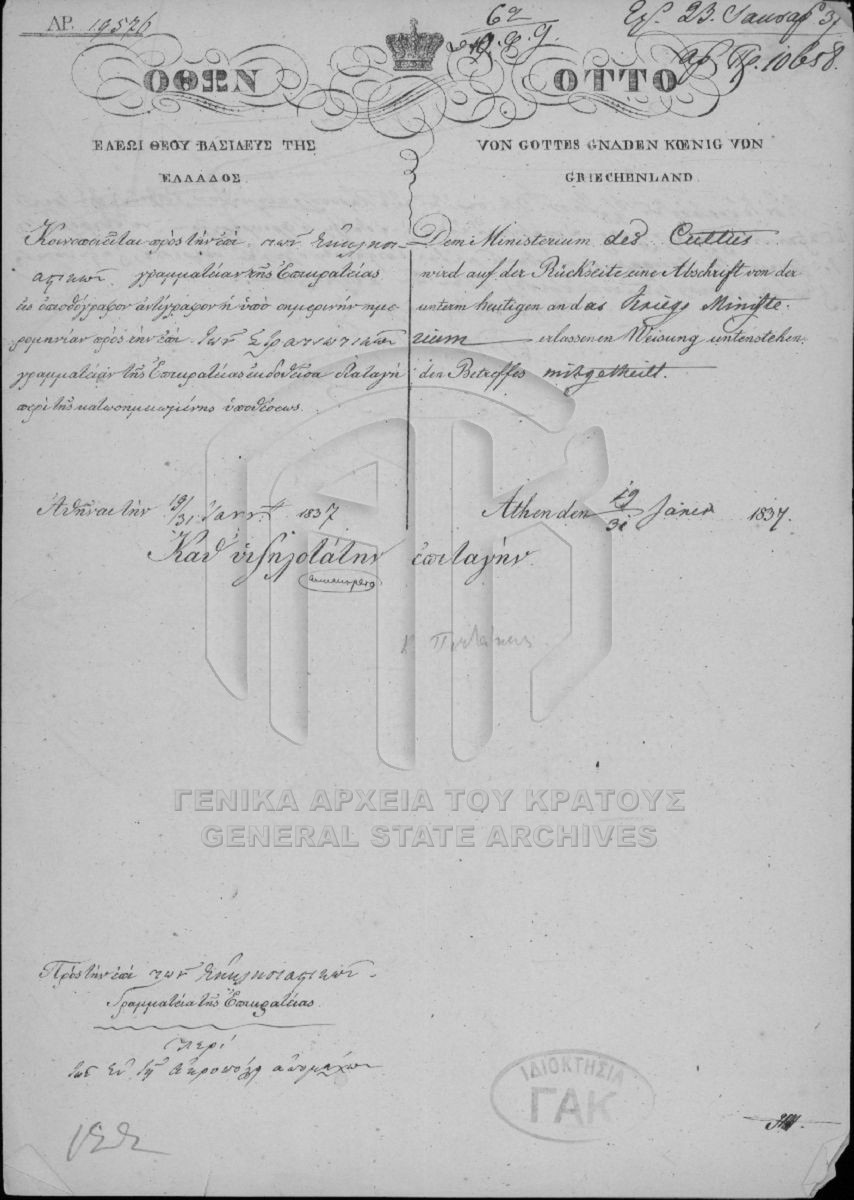 ΑΡ. 19526
62
Εχ. 23. Ιανουαρ 37
αρ. Πρ. 10658.
ΟΘΩΝ
ΕΛΕΩΙ ΘΕΟΥ ΒΑΣΙΛΕΥΣ ΤΗΣ
ΕΛΛΑΔΟΣ.
OTTO
VON GOTTES GNADEN KŒNIG VON
GRIECHENLAND.
Κοινοποιεῖται πρὸς τὴν ἐπὶ τῶν Ἐκκλησι-
αστικῶν γραμματείαν τῆς Ἐπικρατείας
εἰς ὀπισθόγραφον ἀντίγραφον ἡ ὑπὸ σημερινὴν ἡμε-
ρομηνίαν πρὸς τὴν ἐπὶ τῶν Στρατιωτικῶν
γραμματείαν τῆς Ἐπικρατείας ἐκδοθεῖσα διαταγὴ
περὶ τῆς κατωσημειωμένης ὑποθέσεως.
Dem Ministerium des Cultus
wird auf der Rückseite eine Abschrift von der
unterm heutigen an das Kriegs Ministe-
rium erlassenen Weisung untenstehen-
den Betreffes mitgetheilt.
Ἀθῆναι τὴν 19/31 Ἰανν. 1837
Athen den 19/31 Jäner 1837.
Καθ' ὑψηλοτάτην ἐπιταγήν.
Πρὸς τὴν ἐπὶ τῶν Ἐκκλησιαστικῶν
Γραμματεία τῆς Ἐπικρατείας.
περὶ
τῶν ἐν τῇ Ἀκροπόλῃ ἀπομάχων
ΓΕΝΙΚΑ ΑΡΧΕΙΑ ΤΟΥ ΚΡΑΤΟΥΣ
GENERAL STATE ARCHIVES
ΙΔΙΟΚΤΗΣΙΑ
ΓΑΚ